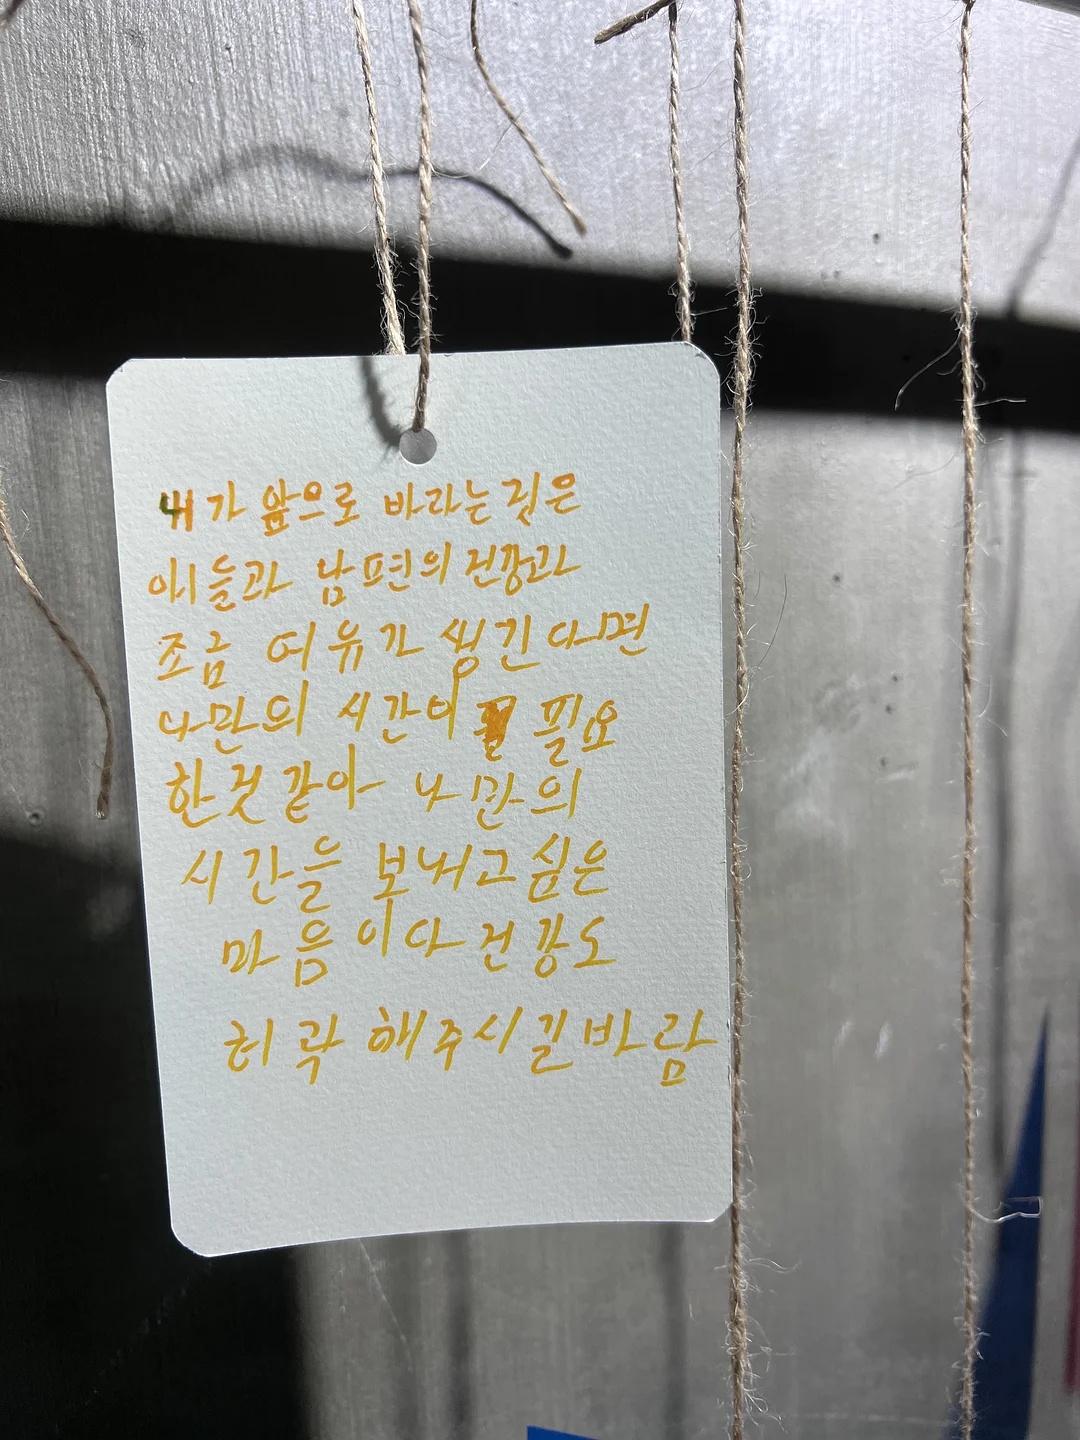 내가 앞으로 바라는것은
아이들과 남편의 건강과
조금 여유가 생긴다면
나만의 시간이 필요
한것같아 나만의
시간을 보내고싶은
마음이다 건강도
허락해주시길바람